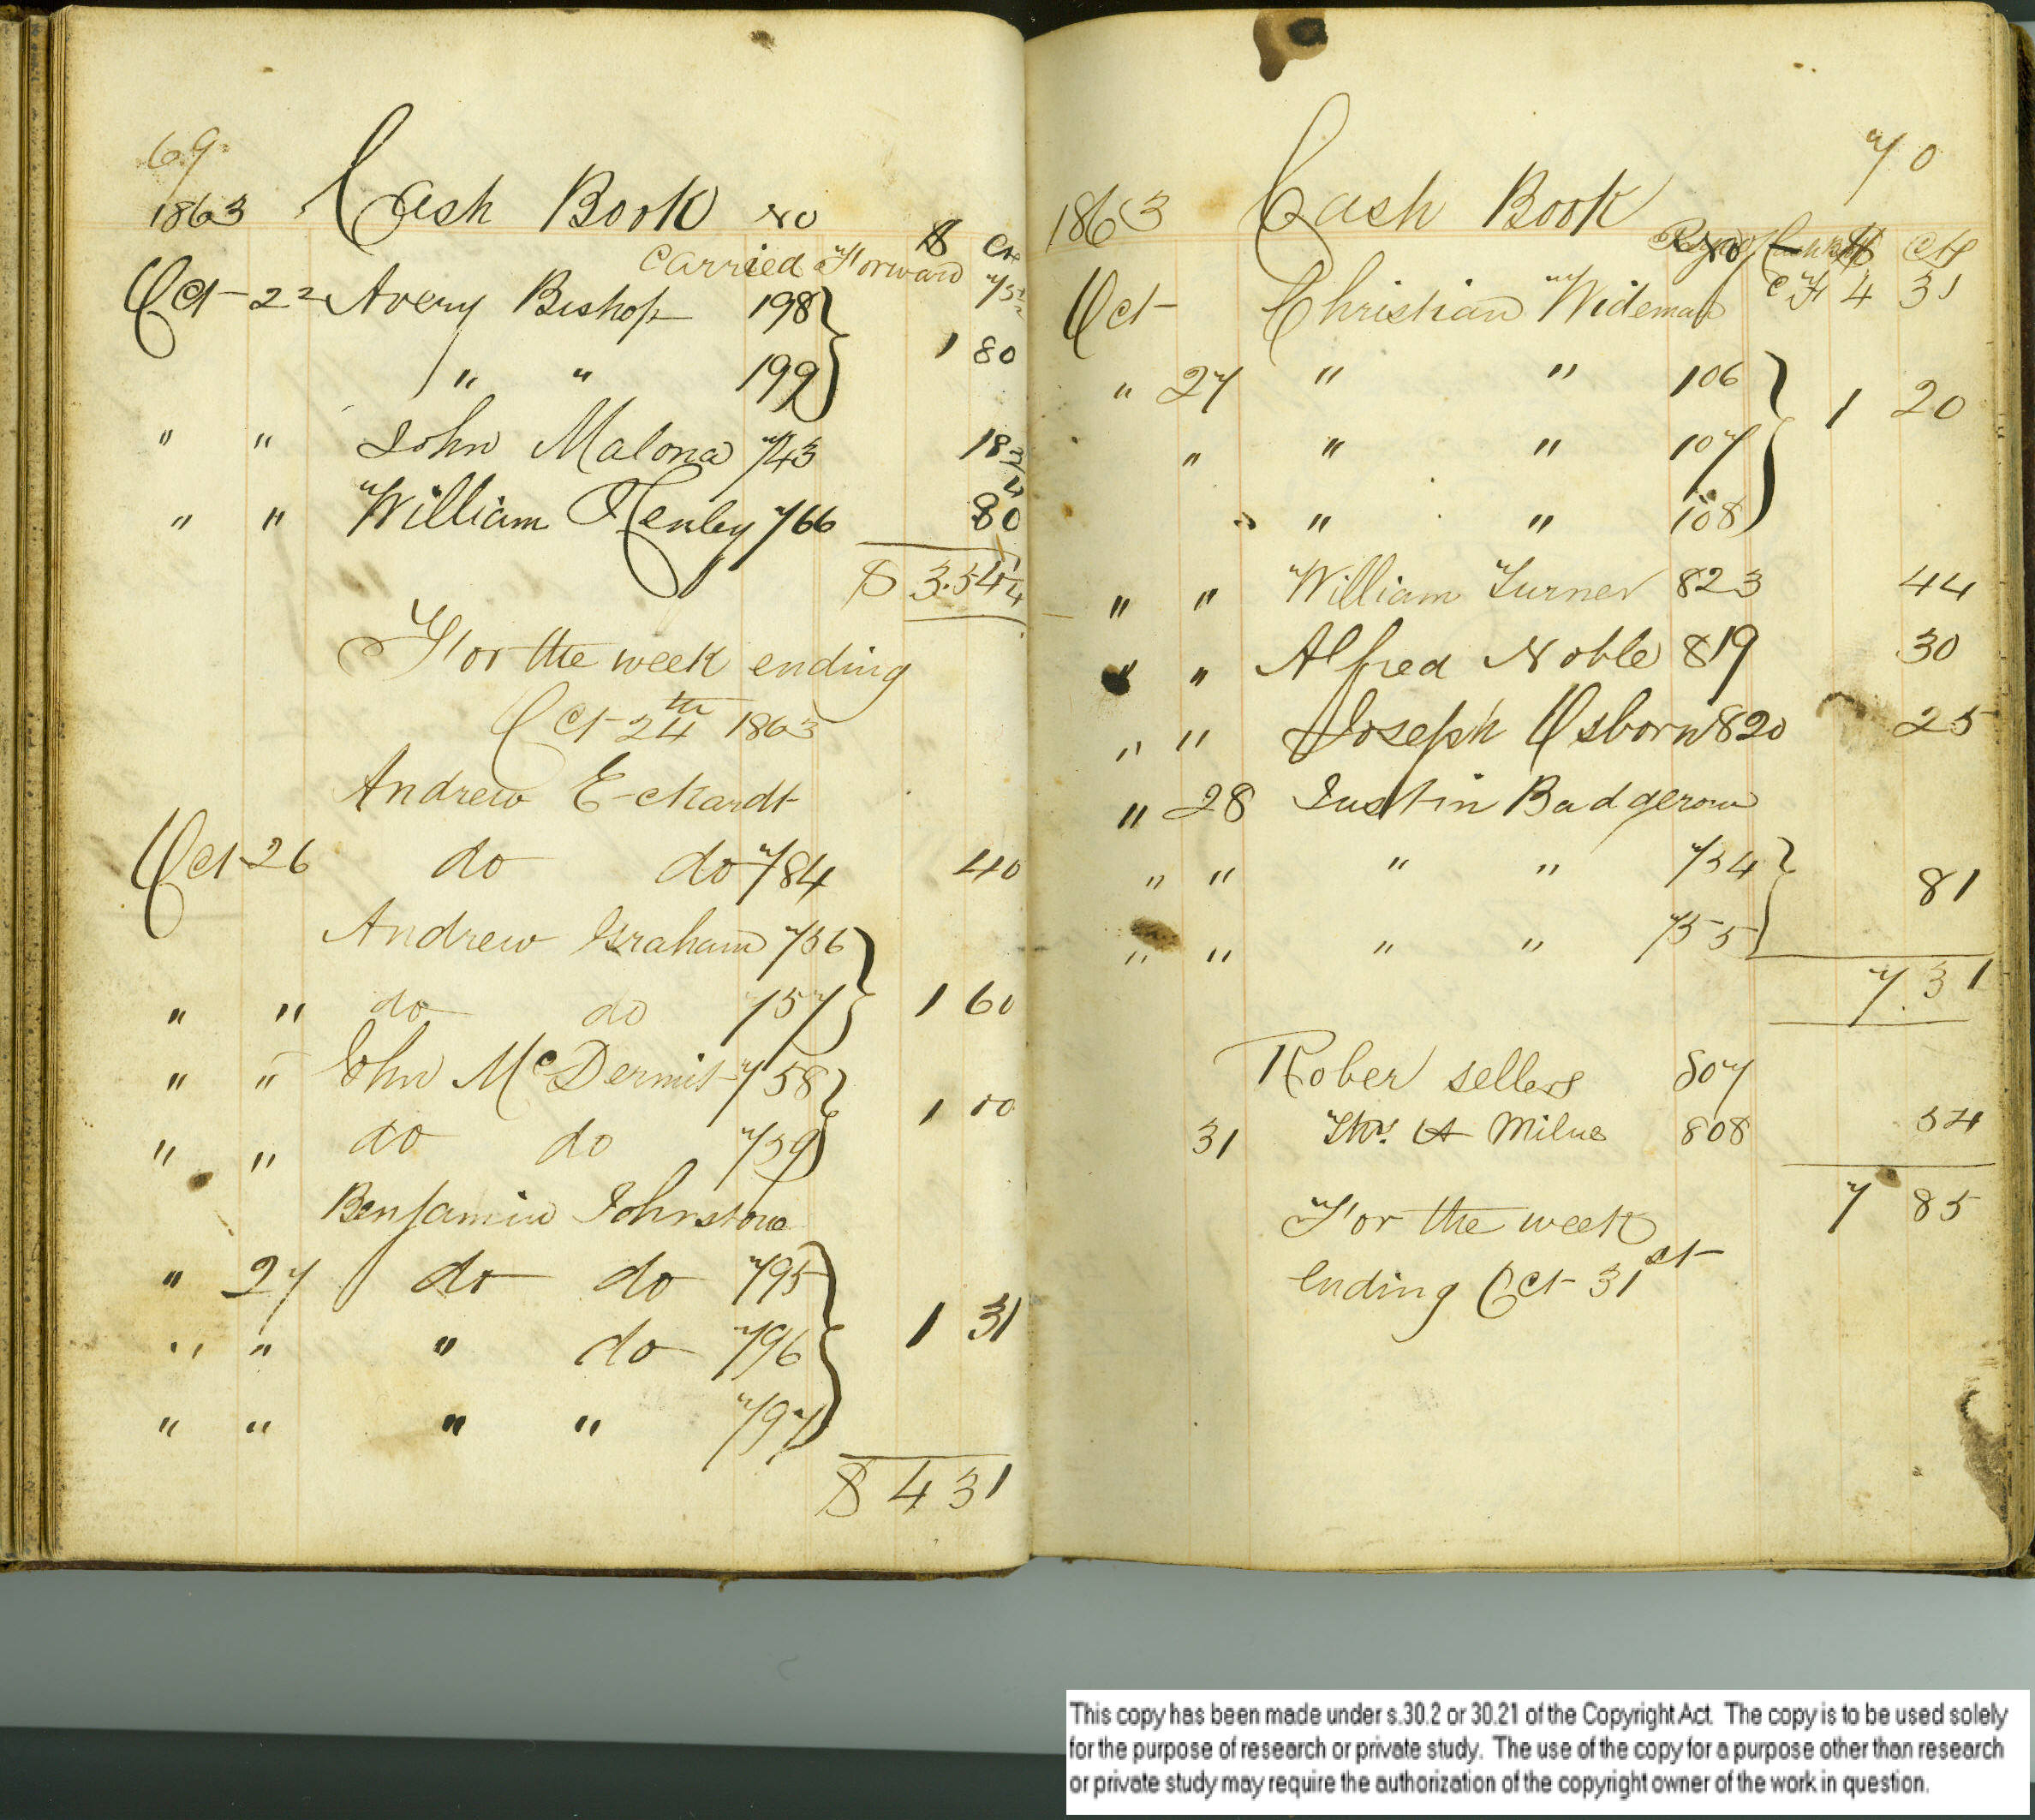 69
1863 Cash Book No $ Cts
Carried Forward 75
Oct 22 Avery Bishop 198
1 80
" " 199
" " John Malona 743 18 3/4
" " William Henley 766 80
$ 3.54 1/4
For the week ending
Oct 24th 1863
Andrew Eckardt
Oct 26 do do 784 40
Andrew Graham 756
" " do do 757 1 60
" " John McDermit 758
1 00
" " do do 759
Benjamin Johnstone
" 27 do do 795
" " " do 796 1 31
" " " " 797
$ 4 31
70
1863 Cash Book
No $ Cts
Oct Christian Wideman C F 4 31
" 27 " " 106
1 20
" " " 107
" " " 108
" " William Turner 823 44
" " Alfred Noble 819 30
" " Joseph Osborn 820 25
" 28 Justin Badgerow
" " " " 754
81
" " " " 755
7.31
Rober Sellers 807
31 Thos A Milne 808 54
7 85
For the week
Ending Oct 31st
This copy has been made under s.30.2 or 30.21 of the Copyright Act. The copy is to be used solely
for the purpose of research or private study. The use of the copy for a purpose other than research
or private study may require the authorization of the copyright owner of the work in question.